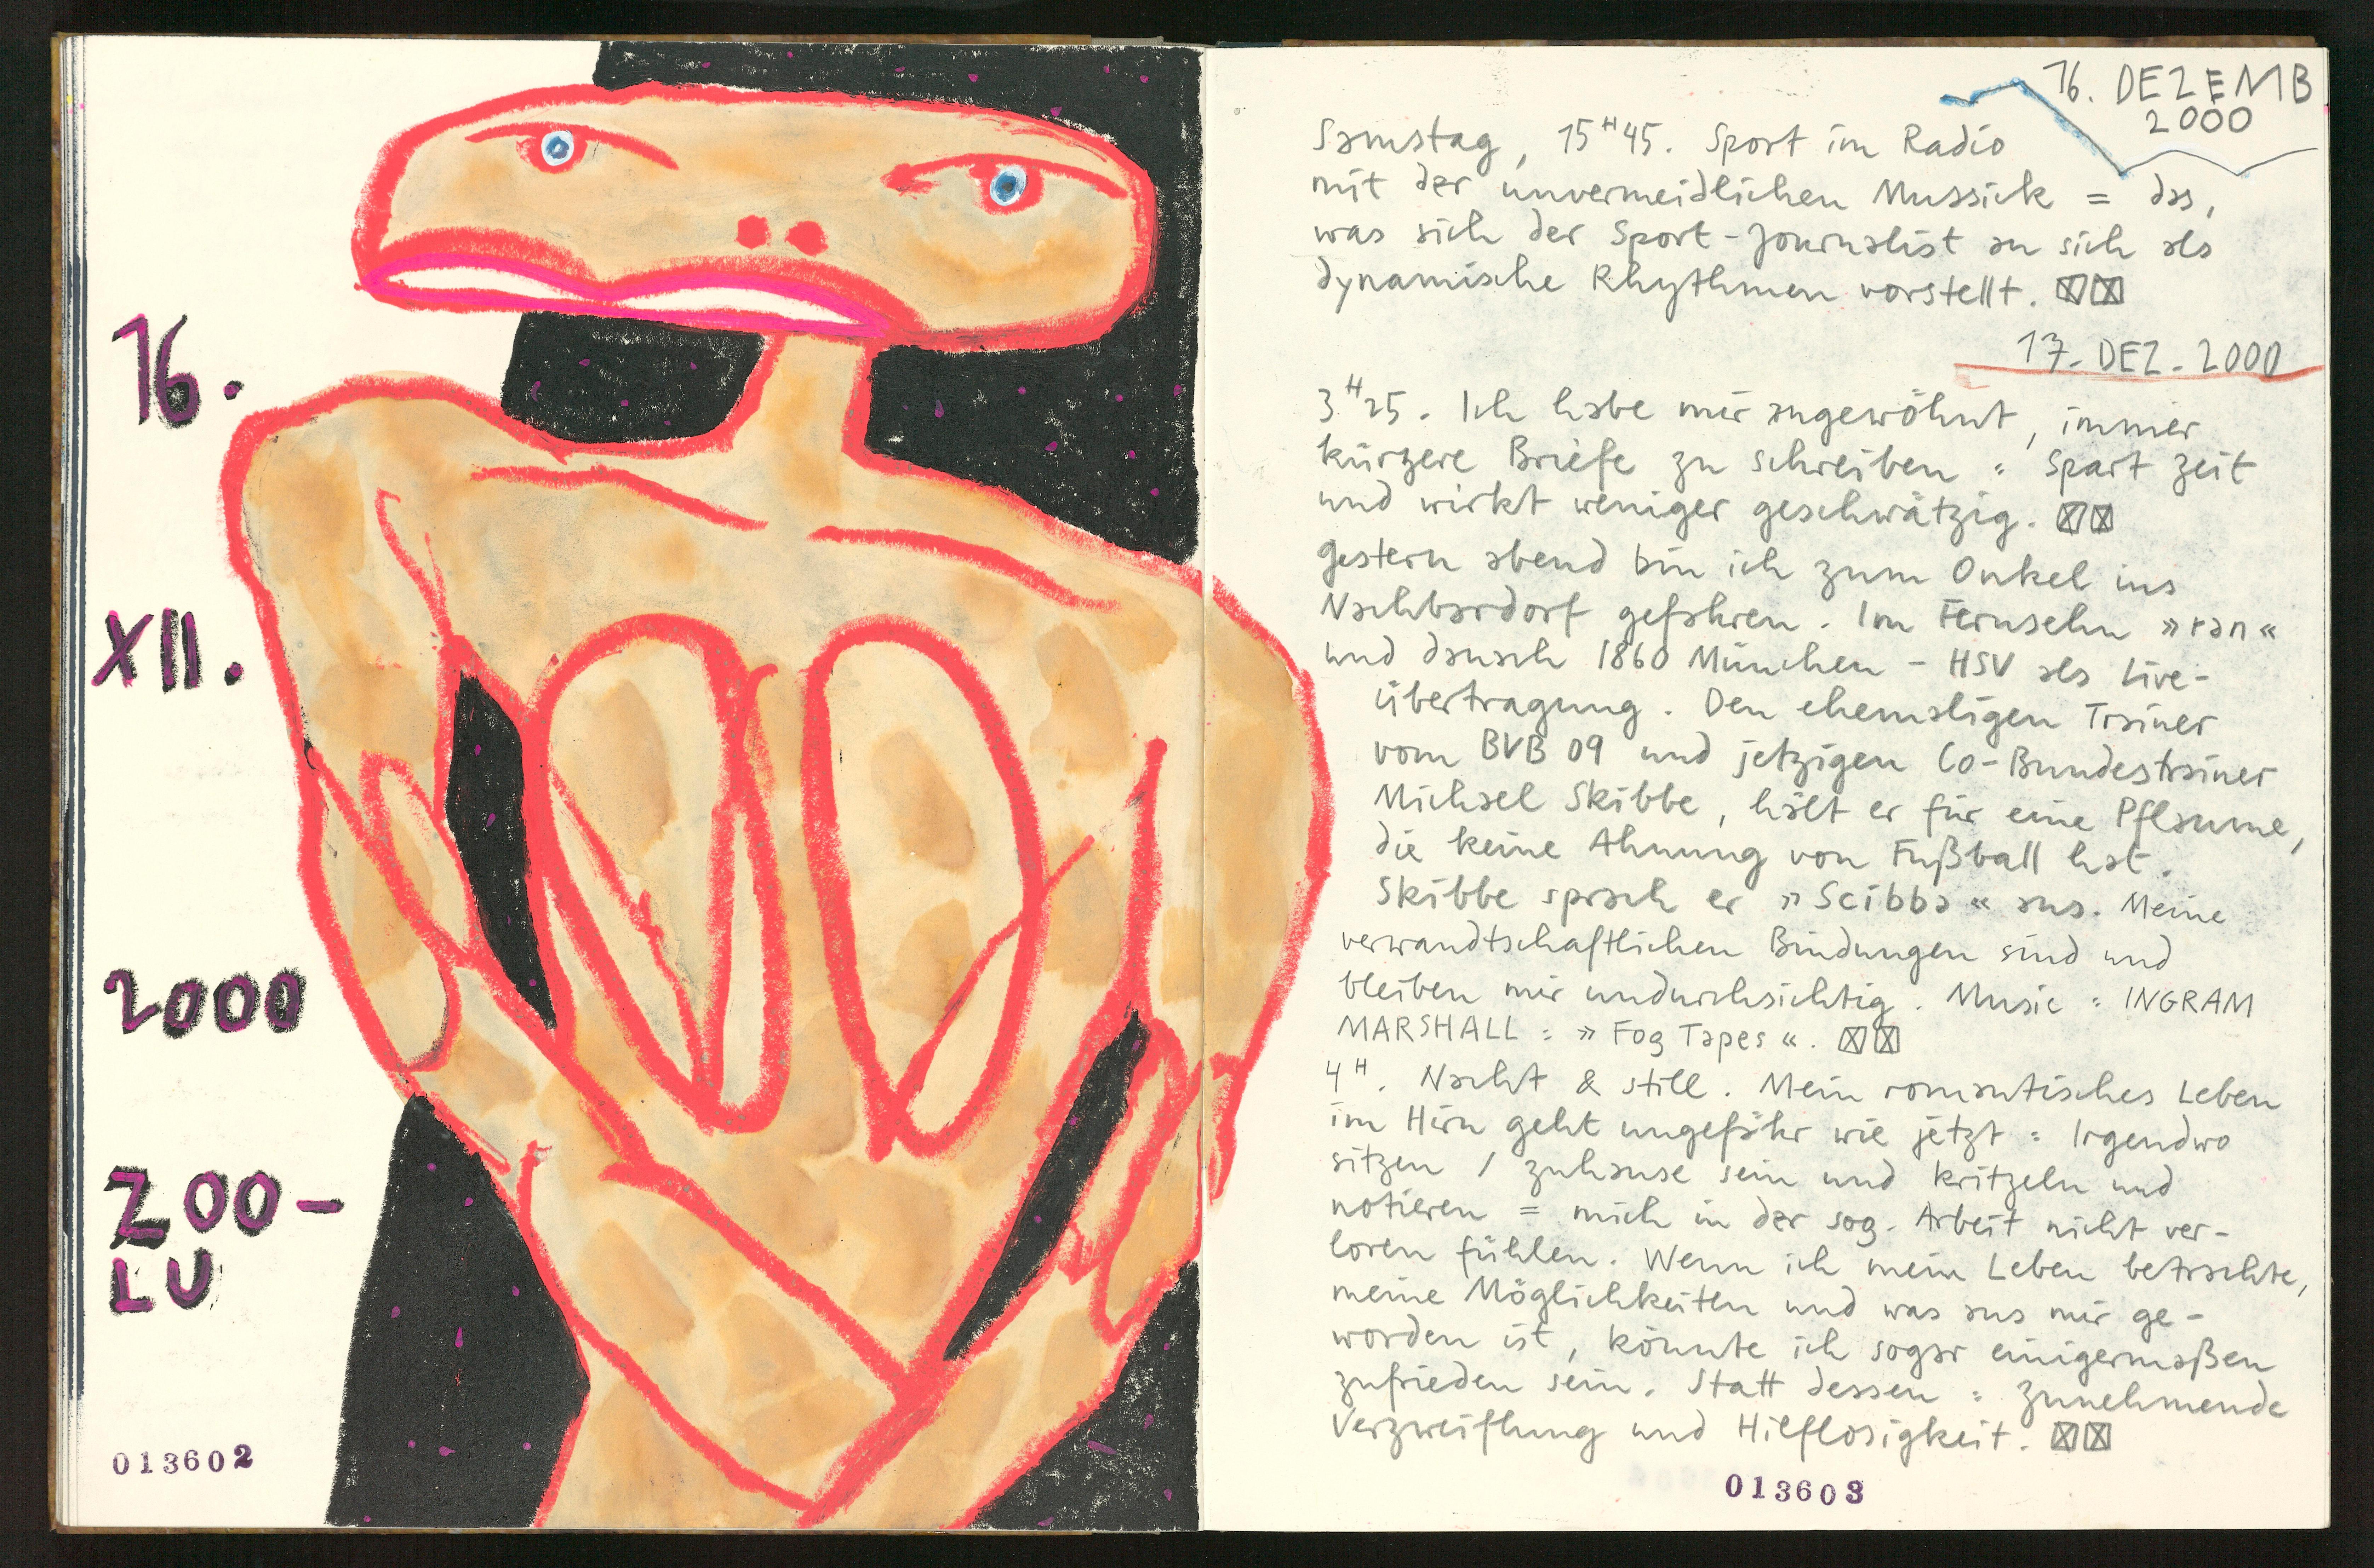 16.
XII.
2000
ZOO-
LU
013602
16. DEZEMB
2000
Samstag, 15ᴴ45. Sport im Radio
mit der unvermeidlichen Mussick = das,
was sich der Sport-Journalist an sich als
dynamische Rhythmen vorstellt. ☒☒
17. DEZ. 2000
3ᴴ25. Ich habe mir angewöhnt, immer
kürzere Briefe zu schreiben : Spart Zeit
und wirkt weniger geschwätzig. ☒☒
Gestern abend bin ich zum Onkel ins
Nachbardorf gefahren. Im Fernsehn »ran«
und danach 1860 München - HSV als Live-
übertragung. Den ehemaligen Trainer
vom BVB 09 und jetzigen Co-Bundestrainer
Michael Skibbe, hält er für eine Pflaume,
die keine Ahnung von Fußball hat.
Skibbe sprach er »Scibba« aus. Meine
verwandtschaftlichen Bindungen sind und
bleiben mir undurchsichtig. Music : INGRAM
MARSHALL : »Fog Tapes«. ☒☒
4ᴴ. Nacht & still. Mein romantisches Leben
im Hirn geht ungefähr wie jetzt : Irgendwo
sitzen / zuhause sein und kritzeln und
notieren = mich in der sog. Arbeit nicht ver-
loren fühlen. Wenn ich mein Leben betrachte,
meine Möglichkeiten und was aus mir ge-
worden ist, könnte ich sogar einigermaßen
zufrieden sein. Statt dessen : Zunehmende
Verzweiflung und Hilflosigkeit. ☒☒
013603